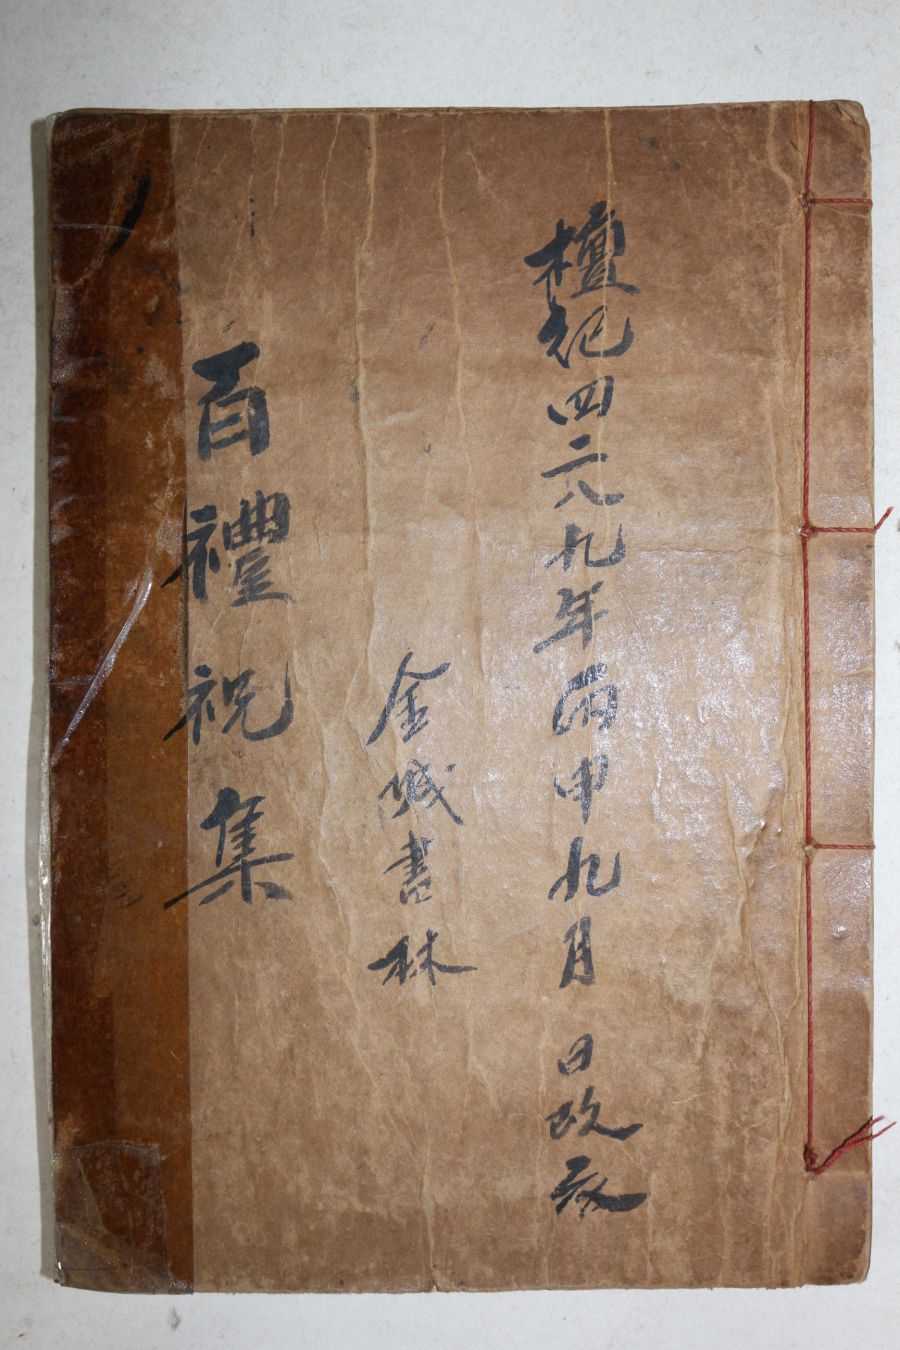 檀紀四二八九年丙申九月 日改衣
金城書林
百禮祝集